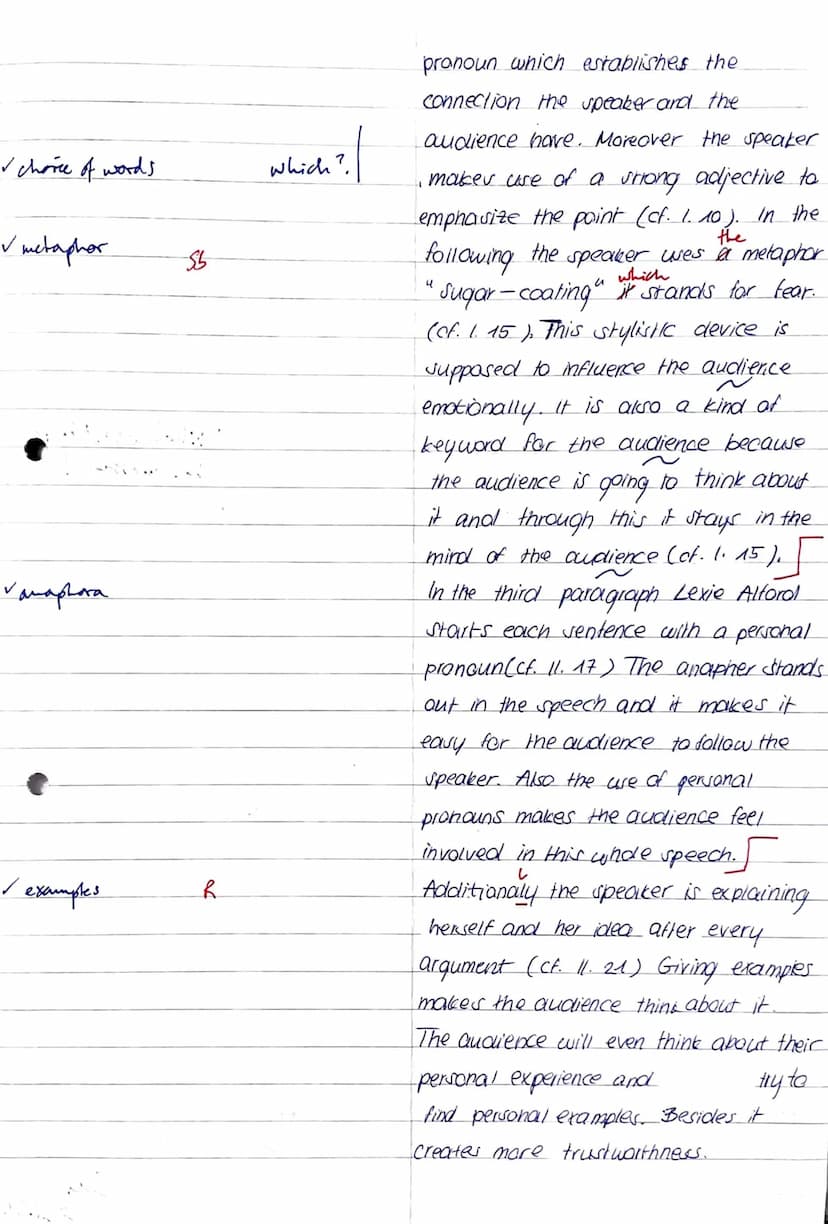 pronoun which establishes the
connection the speaker and the
audience have. Moreover the speaker
✓ choice of words which?
makes use of a strong adjective to
emphasize the point (cf. l. 10). In the
the
✓ metaphor
Sb
following the speaker uses a metaphor
which
"sugar-coating" it stands for fear.
(cf. l. 15). This stylistic device is
supposed to influence the audience
emotionally. It is also a kind of
keyword for the audience because
the audience is going to think about
it and through this it stays in the
mind of the audience (cf. l. 15).
✓ anaphora
In the third paragraph Lexie Alford
starts each sentence with a personal
pronoun (cf. ll. 17) The anapher stands
out in the speech and it makes it
easy for the audience to follow the
speaker. Also the use of personal
pronouns makes the audience feel
involved in this whole speech.
✓ examples R
l
Additionaly the speaker is explaining
herself and her idea after every
argument (cf. ll. 21) Giving examples
makes the audience think about it.
The audience will even think about their
personal experience and try to
find personal examples. Besides it
creates more trustworthness.